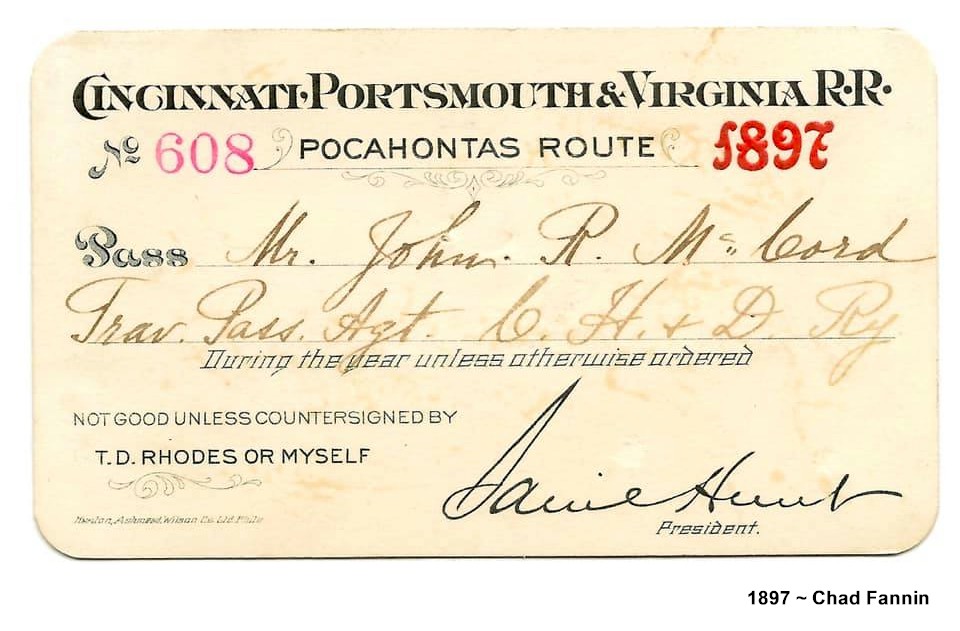 CINCINNATI·PORTSMOUTH & VIRGINIA R·R·
No 608 POCAHONTAS ROUTE 1897
Pass Mr. John. R. Mc Cord
Trav. Pass. Agt. C. H. & D. Ry
During the year unless otherwise ordered
NOT GOOD UNLESS COUNTERSIGNED BY
T.D. RHODES OR MYSELF
Ashmead, Wilson Co. Ltd. Phila
Hunt
President.
1897 ~ Chad Fannin